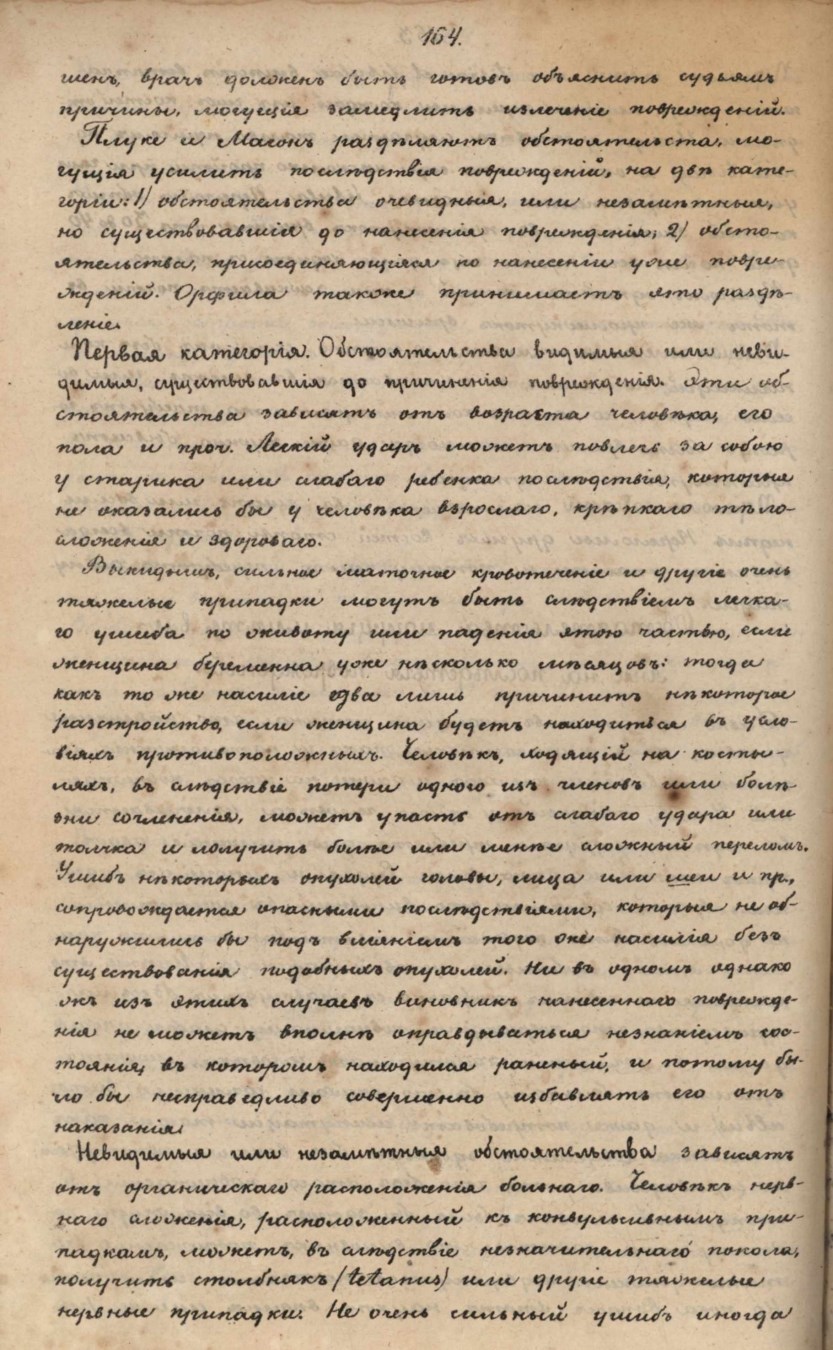 164.
шенъ, врачъ долженъ быть готовъ объяснить судьямъ
причины, могущія замедлить излеченіе поврежденій.
Плуке и Магонъ раздѣляютъ обстоятельста, мо-
гущія усилить послѣдствія поврежденій, на двѣ кате-
горіи: 1/ обстоятельства очевидныя, или незамѣтныя,
но существовавшія до нанесенія поврежденія; 2/ обсто-
ятельства, присоединяющіяся по нанесеніи уже повре-
жденій. Орфила также принимаетъ это раздѣ-
леніе.
Первая категорія. Обстоятельства видимыя или неви-
димыя, существовавшія до причиненія поврежденія. Эти об-
стоятельства зависятъ отъ возраста человѣка, его
пола и проч. Легкій ударъ можетъ повлечь за собою
у старика или слабаго ребенка послѣдствія, которыя
не оказались бы у человѣка взрослаго, крѣпкаго тѣло-
сложенія и здороваго.
Выкидышъ, сильное маточное кровотеченіе и другіе очень
тяжелые припадки могутъ быть слѣдствіемъ легка-
го ушиба по животу или паденія этою частью, если
женщина беременна уже нѣсколько мѣсяцовъ: тогда
какъ то же насиліе едва лишь причинитъ нѣкоторое
разстройство, если женщина будетъ находиться въ усло-
віяхъ противоположныхъ. Человѣкъ, ходящій на косты-
ляхъ, въ слѣдствіе потери одного изъ членовъ или болѣ-
зни сочлененія, можетъ упасть отъ слабаго удара или
толчка и получить болѣе или менѣе сложный переломъ.
Ушибъ нѣкоторыхъ опухолей головы, лица или шеи и пр.,
сопровождается опасными послѣдствіями, которыя не об-
наружились бы подъ вліяніемъ того же насилія безъ
существованія подобныхъ опухолей. Ни въ одномъ однако
жъ изъ этихъ случаевъ виновникъ нанесеннаго поврежде-
нія не можетъ вполнѣ оправдываться незнаніемъ сос-
тоянія, въ которомъ находился раненый, и потому бы-
ло бы несправедливо совершенно избавлять его отъ
наказанія.
Невидимыя или незамѣтныя обстоятельства зависятъ
отъ органическаго расположенія больнаго. Человѣкъ нерв-
наго сложенія, расположенный къ конвульсивнымъ при-
падкамъ, можетъ, въ слѣдствіе незначительнаго покола,
получить столбнякъ /tetanus/ или другіе тяжелые
нервные припадки. Не очень сильный ушибъ иногда